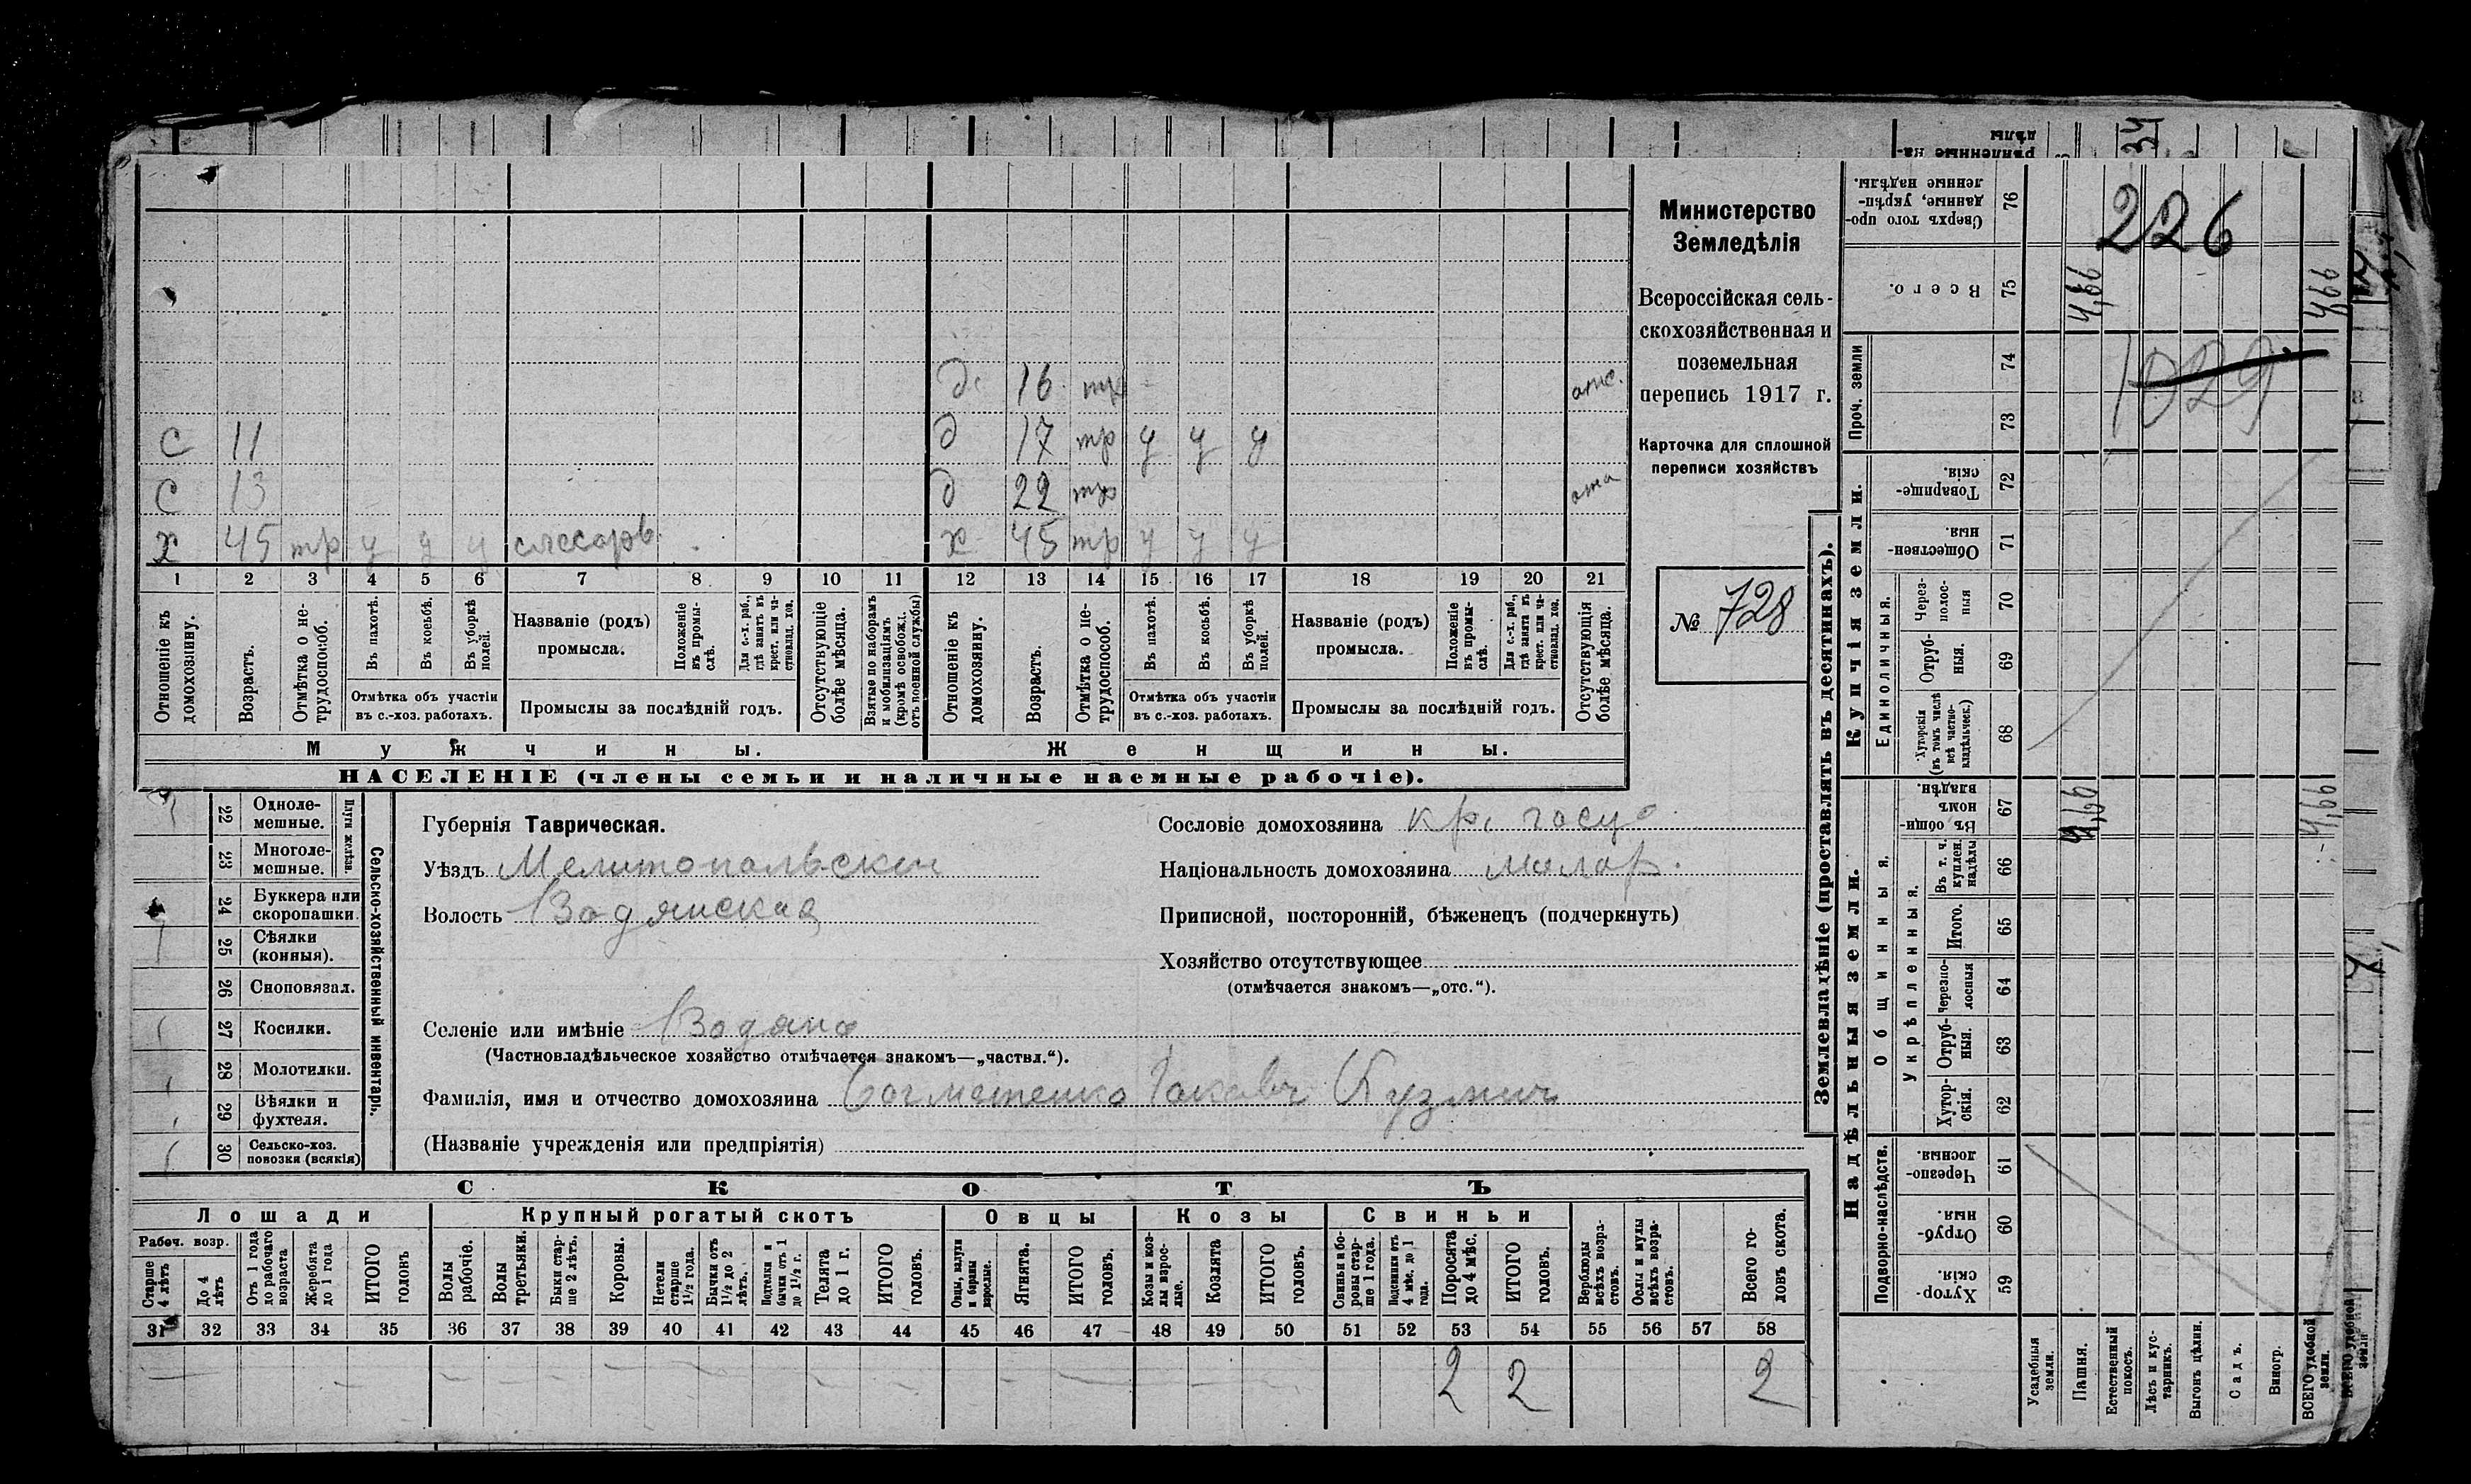 226
Министерство
Земледѣлія
Всероссійская сель-
скохозяйственная и
поземельная
перепись 1917 г.
Карточка для сплошной
переписи хозяйствъ
№ 728
д. 16 тр отс.
С 11 д 17 тр у у у
С 13 д 22 тр
х 45 тр у у у слесарь х 45 тр у у у
1 2 3 4 5 6 7 8 9 10 11 12 13 14 15 16 17 18 19 20 21
Отношеніе къ домохозяину.
Возрастъ.
Отмѣтка о не-трудоспособ.
Въ пахотѣ.
Въ косьбѣ.
Въ уборкѣ полей.
Отмѣтка объ участіи
въ с.-хоз. работахъ.
Названіе (родъ)
промысла.
Положеніе въ промы-слѣ.
Для с.-х. раб., гдѣ занятъ въ крест. или ча-стновлад. хоз.
Промыслы за послѣдній годъ.
Отсутствующіе болѣе мѣсяца.
Взятые по наборамъ и мобилизаціямъ (кромѣ освобожд. отъ военной службы)
Отношеніе къ домохозяину.
Возрастъ.
Отмѣтка о не-трудоспособ.
Въ пахотѣ.
Въ косьбѣ.
Въ уборкѣ полей.
Отмѣтка объ участіи
въ с.-хоз. работахъ.
Названіе (родъ)
промысла.
Положеніе въ промы-слѣ.
Для с.-х. раб., гдѣ занята въ крест. или ча-стновлад. хоз.
Промыслы за послѣдній годъ.
Отсутствующія болѣе мѣсяца.
Мужчины. Женщины.
НАСЕЛЕНІЕ (члены семьи и наличные наемные рабочіе).
22 Одноле-мешные.
23 Многоле-мешные.
Плуги желѣзн.
24 Буккера или скоропашки.
25 Сѣялки (конныя).
26 Сноповязал.
27 Косилки.
28 Молотилки.
29 Вѣялки и фухтеля.
30 Сельско-хоз. повозки (всякія)
Сельско-хозяйственный инвентарь.
Губернія Таврическая.
Уѣздъ Мелитопольскій
Волость Водянская
Сословіе домохозяина кр. госуд
Національность домохозяина малор.
Приписной, посторонній, бѣженецъ (подчеркнуть)
Хозяйство отсутствующее
(отмѣчается знакомъ—„отс.“).
Селеніе или имѣніе Водяно
(Частновладѣльческое хозяйство отмѣчается знакомъ—„частвл.“).
Фамилія, имя и отчество домохозяина Кузмич
(Названіе учрежденія или предпріятія)
СКОТЪ
Лошади Крупный рогатый скотъ Овцы Козы Свиньи
Рабоч. возр.
Старше 4 лѣтъ
До 4 лѣтъ
Отъ 1 года до рабочаго возраста
Жеребята до 1 года
ИТОГО головъ
Волы рабочіе.
Волы третьяки.
Быки стар-ше 2 лѣтъ.
Коровы.
Нетели старше 1½ года.
Бычки отъ 1½ до 2 лѣтъ.
Подтелки и бычки отъ 1 до 1½ г.
Телята до 1 г.
ИТОГО головъ.
Овцы, валухи и бараны взрослые.
Ягнята.
ИТОГО головъ.
Козы и коз-лы взрос-лые.
Козлята
ИТОГО головъ.
Свиньи и бо-ровы стар-ше 1 года.
Подсвинки отъ 4 мѣс. до 1 года.
Поросята до 4 мѣс.
ИТОГО головъ.
Верблюды всѣхъ возра-стовъ.
Ослы и мулы всѣхъ возра-стовъ.
Всего го-ловъ скота.
31 32 33 34 35 36 37 38 39 40 41 42 43 44 45 46 47 48 49 50 51 52 53 54 55 56 57 58
2 2 2
Землевладѣніе (проставлять въ десятинахъ).
Надѣльныя земли.
Купчія земли.
Проч. земли
Подворно-наслѣдств.
Общинныя.
Укрѣпленныя.
Единоличныя.
Сверхъ того про-данные, укрѣп-ленные надѣлы. 76
Всего. 75 4,66 4,66
74
1029
73
Товарище-скія. 72
Обществен-ныя. 71
Через-полос-ныя 70
Отруб-ныя. 69
Хуторскія (въ томъ числѣ всѣ частно-владѣльческ.) 68
Въ общин-номъ владѣн. 67 4,66 4,66
Въ т. ч. куплен. надѣлы 66
Итого. 65
Черезпо-лосныя 64
Отруб-ныя. 63
Хутор-скія. 62
Черезпо-лосныя. 61
Отруб-ныя. 60
Хутор-скія. 59
Усадебныя земли.
Пашня.
Естественный покосъ.
Лѣсъ и кус-тарникъ.
Выгонъ цѣлин.
Садъ.
Виногр.
ВСЕГО удобной земли.